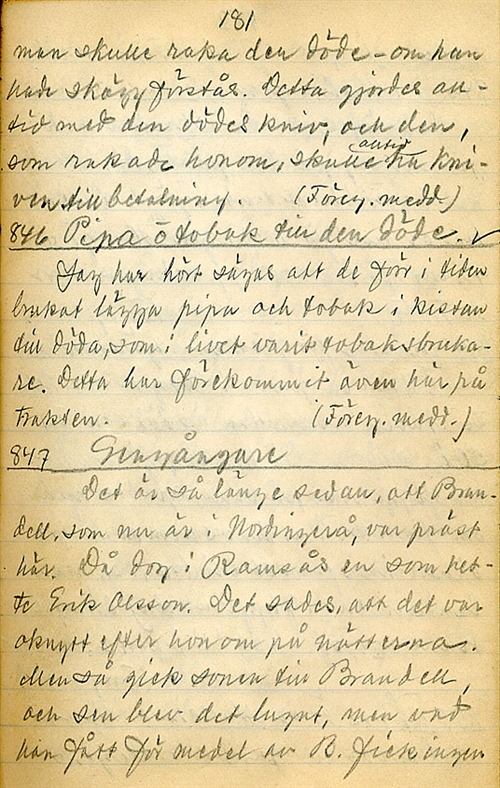 181
man skulle raka den döde – om han
hade skägg förstås. Detta gjordes all-
tid med den dödes kniv, och den,
som rakade honom, skulle alltid ha kni-
ven till betalning. (Föreg. medd.)
846 Pipa ö tobak till den döde.
Jag har hört sägas att de förr i tiden
brukat lägga pipa och tobak i kistan
till döda, som i livet varit tobaksbruka-
re. Detta har förekommit även här på
trakten. (Föreg. medd.)
847 Gengångare
Det är så länge sedan, att Bran-
dell, som nu är i Nordingerå, var präst
här. Då dog i Ramsås en som het-
te Erik Olsson. Det sades, att det var
oknytt efter honom på nätterna.
Men så gick sonen till Brandell,
och sen blev det lugnt, men vad
han fått för medel av B. fick ingen